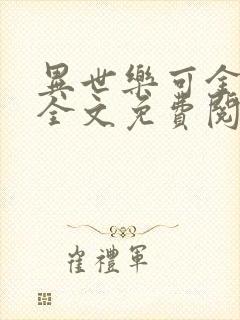 異世樂可金
全文免費閱
崔禮軍